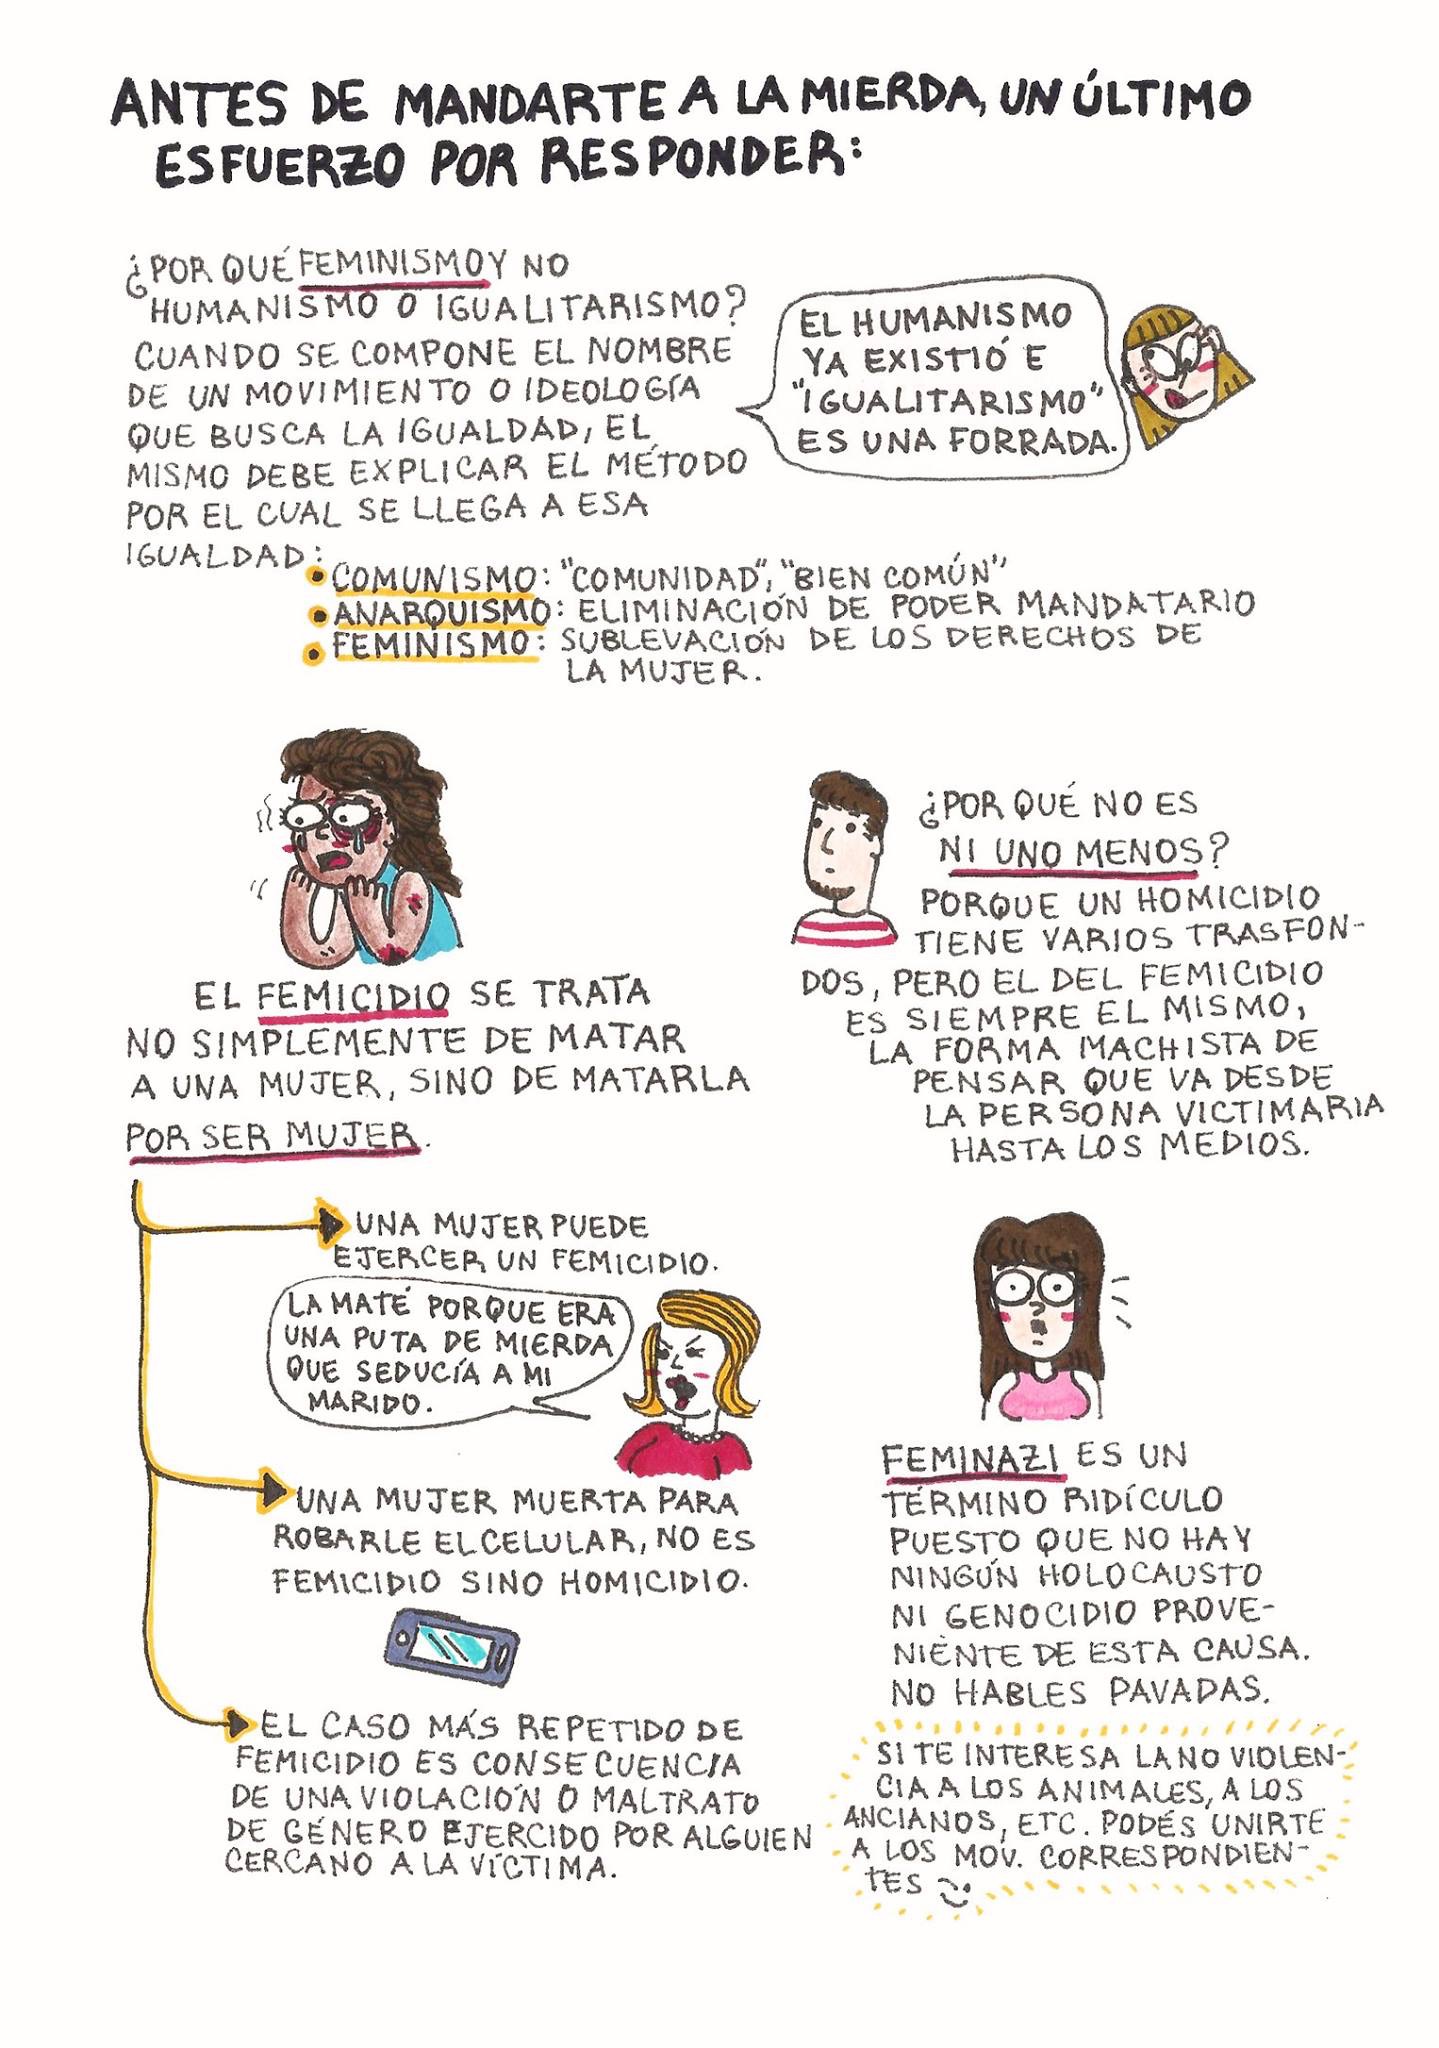 ANTES DE MANDARTE A LA MIERDA, UN ÚLTIMO
ESFUERZO POR RESPONDER:
¿POR QUÉ FEMINISMO Y NO
HUMANISMO O IGUALITARISMO?
CUANDO SE COMPONE EL NOMBRE
DE UN MOVIMIENTO O IDEOLOGÍA
QUE BUSCA LA IGUALDAD, EL
MISMO DEBE EXPLICAR EL MÉTODO
POR EL CUAL SE LLEGA A ESA
IGUALDAD:
EL HUMANISMO
YA EXISTIÓ E
"IGUALITARISMO"
ES UNA FORRADA.
• COMUNISMO: "COMUNIDAD", "BIEN COMÚN"
• ANARQUISMO: ELIMINACIÓN DE PODER MANDATARIO
• FEMINISMO: SUBLEVACIÓN DE LOS DERECHOS DE
LA MUJER.
EL FEMICIDIO SE TRATA
NO SIMPLEMENTE DE MATAR
A UNA MUJER, SINO DE MATARLA
POR SER MUJER.
UNA MUJER PUEDE
EJERCER UN FEMICIDIO.
LA MATÉ PORQUE ERA
UNA PUTA DE MIERDA
QUE SEDUCÍA A MI
MARIDO.
UNA MUJER MUERTA PARA
ROBARLE EL CELULAR, NO ES
FEMICIDIO SINO HOMICIDIO.
EL CASO MÁS REPETIDO DE
FEMICIDIO ES CONSECUENCIA
DE UNA VIOLACIÓN O MALTRATO
DE GÉNERO EJERCIDO POR ALGUIEN
CERCANO A LA VÍCTIMA.
¿POR QUÉ NO ES
NI UNO MENOS?
PORQUE UN HOMICIDIO
TIENE VARIOS TRASFON-
DOS, PERO EL DEL FEMICIDIO
ES SIEMPRE EL MISMO,
LA FORMA MACHISTA DE
PENSAR QUE VA DESDE
LA PERSONA VICTIMARIA
HASTA LOS MEDIOS.
FEMINAZI ES UN
TÉRMINO RIDÍCULO
PUESTO QUE NO HAY
NINGÚN HOLOCAUSTO
NI GENOCIDIO PROVE-
NIENTE DE ESTA CAUSA.
NO HABLES PAVADAS.
SI TE INTERESA LA NO VIOLEN-
CIA A LOS ANIMALES, A LOS
ANCIANOS, ETC. PODÉS UNIRTE
A LOS MOV. CORRESPONDIEN-
TES